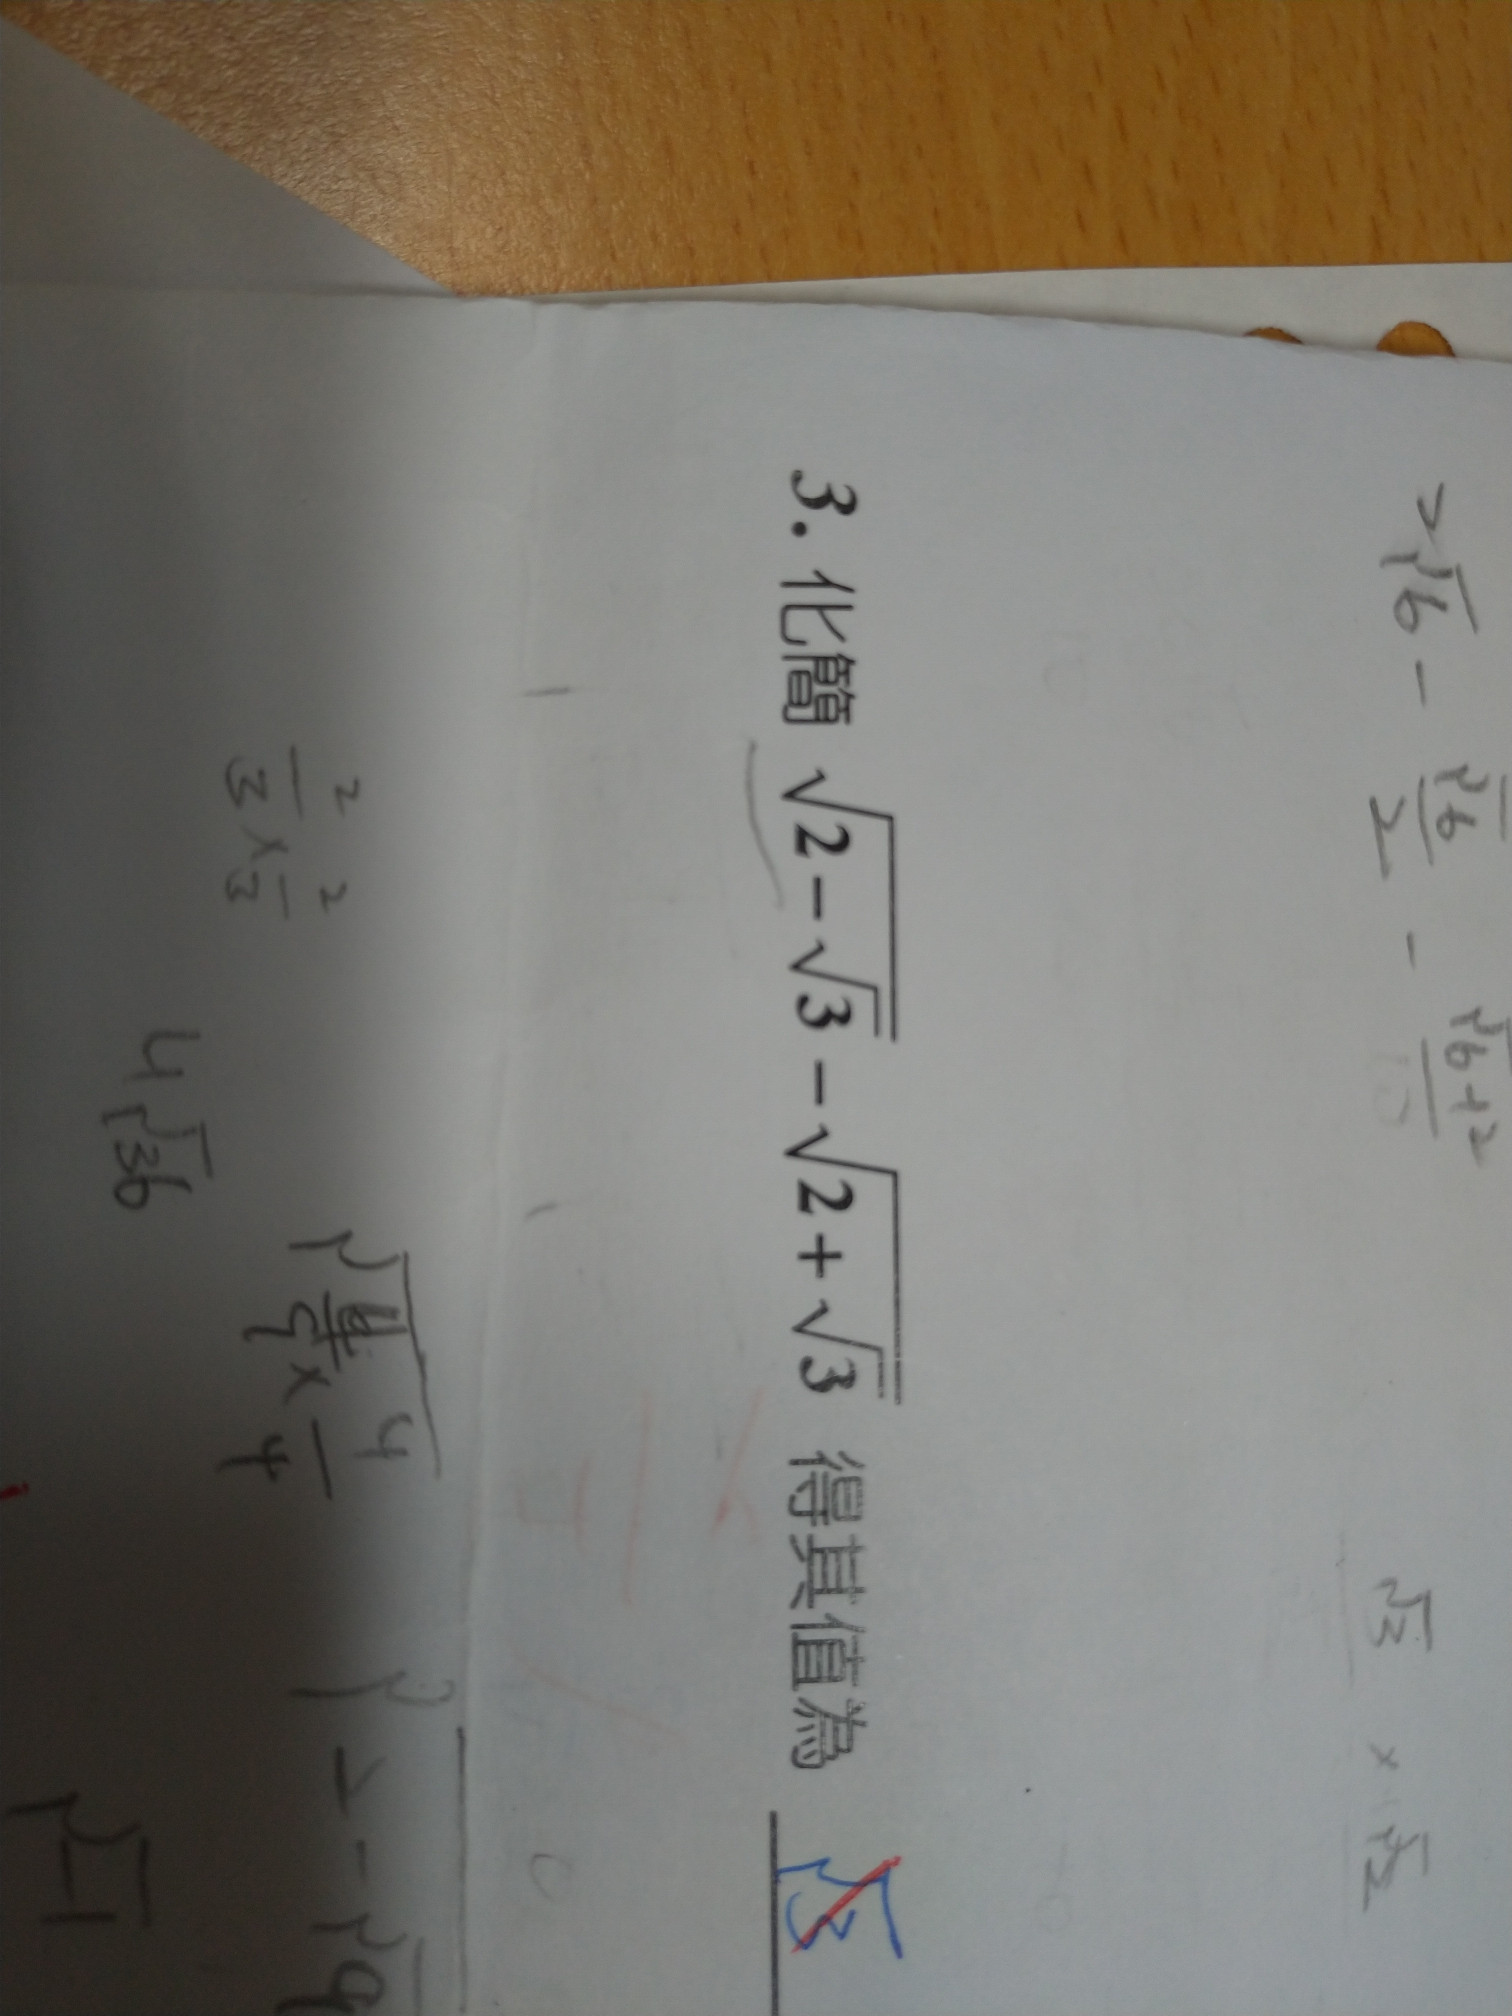 √6 - √6/2 - √6+2
√3 × √2
3. 化簡 √(2-√3) - √(2+√3) 得其值為 √3
2 2
3 × 3
4√36
4 4
× 4
√2-√9